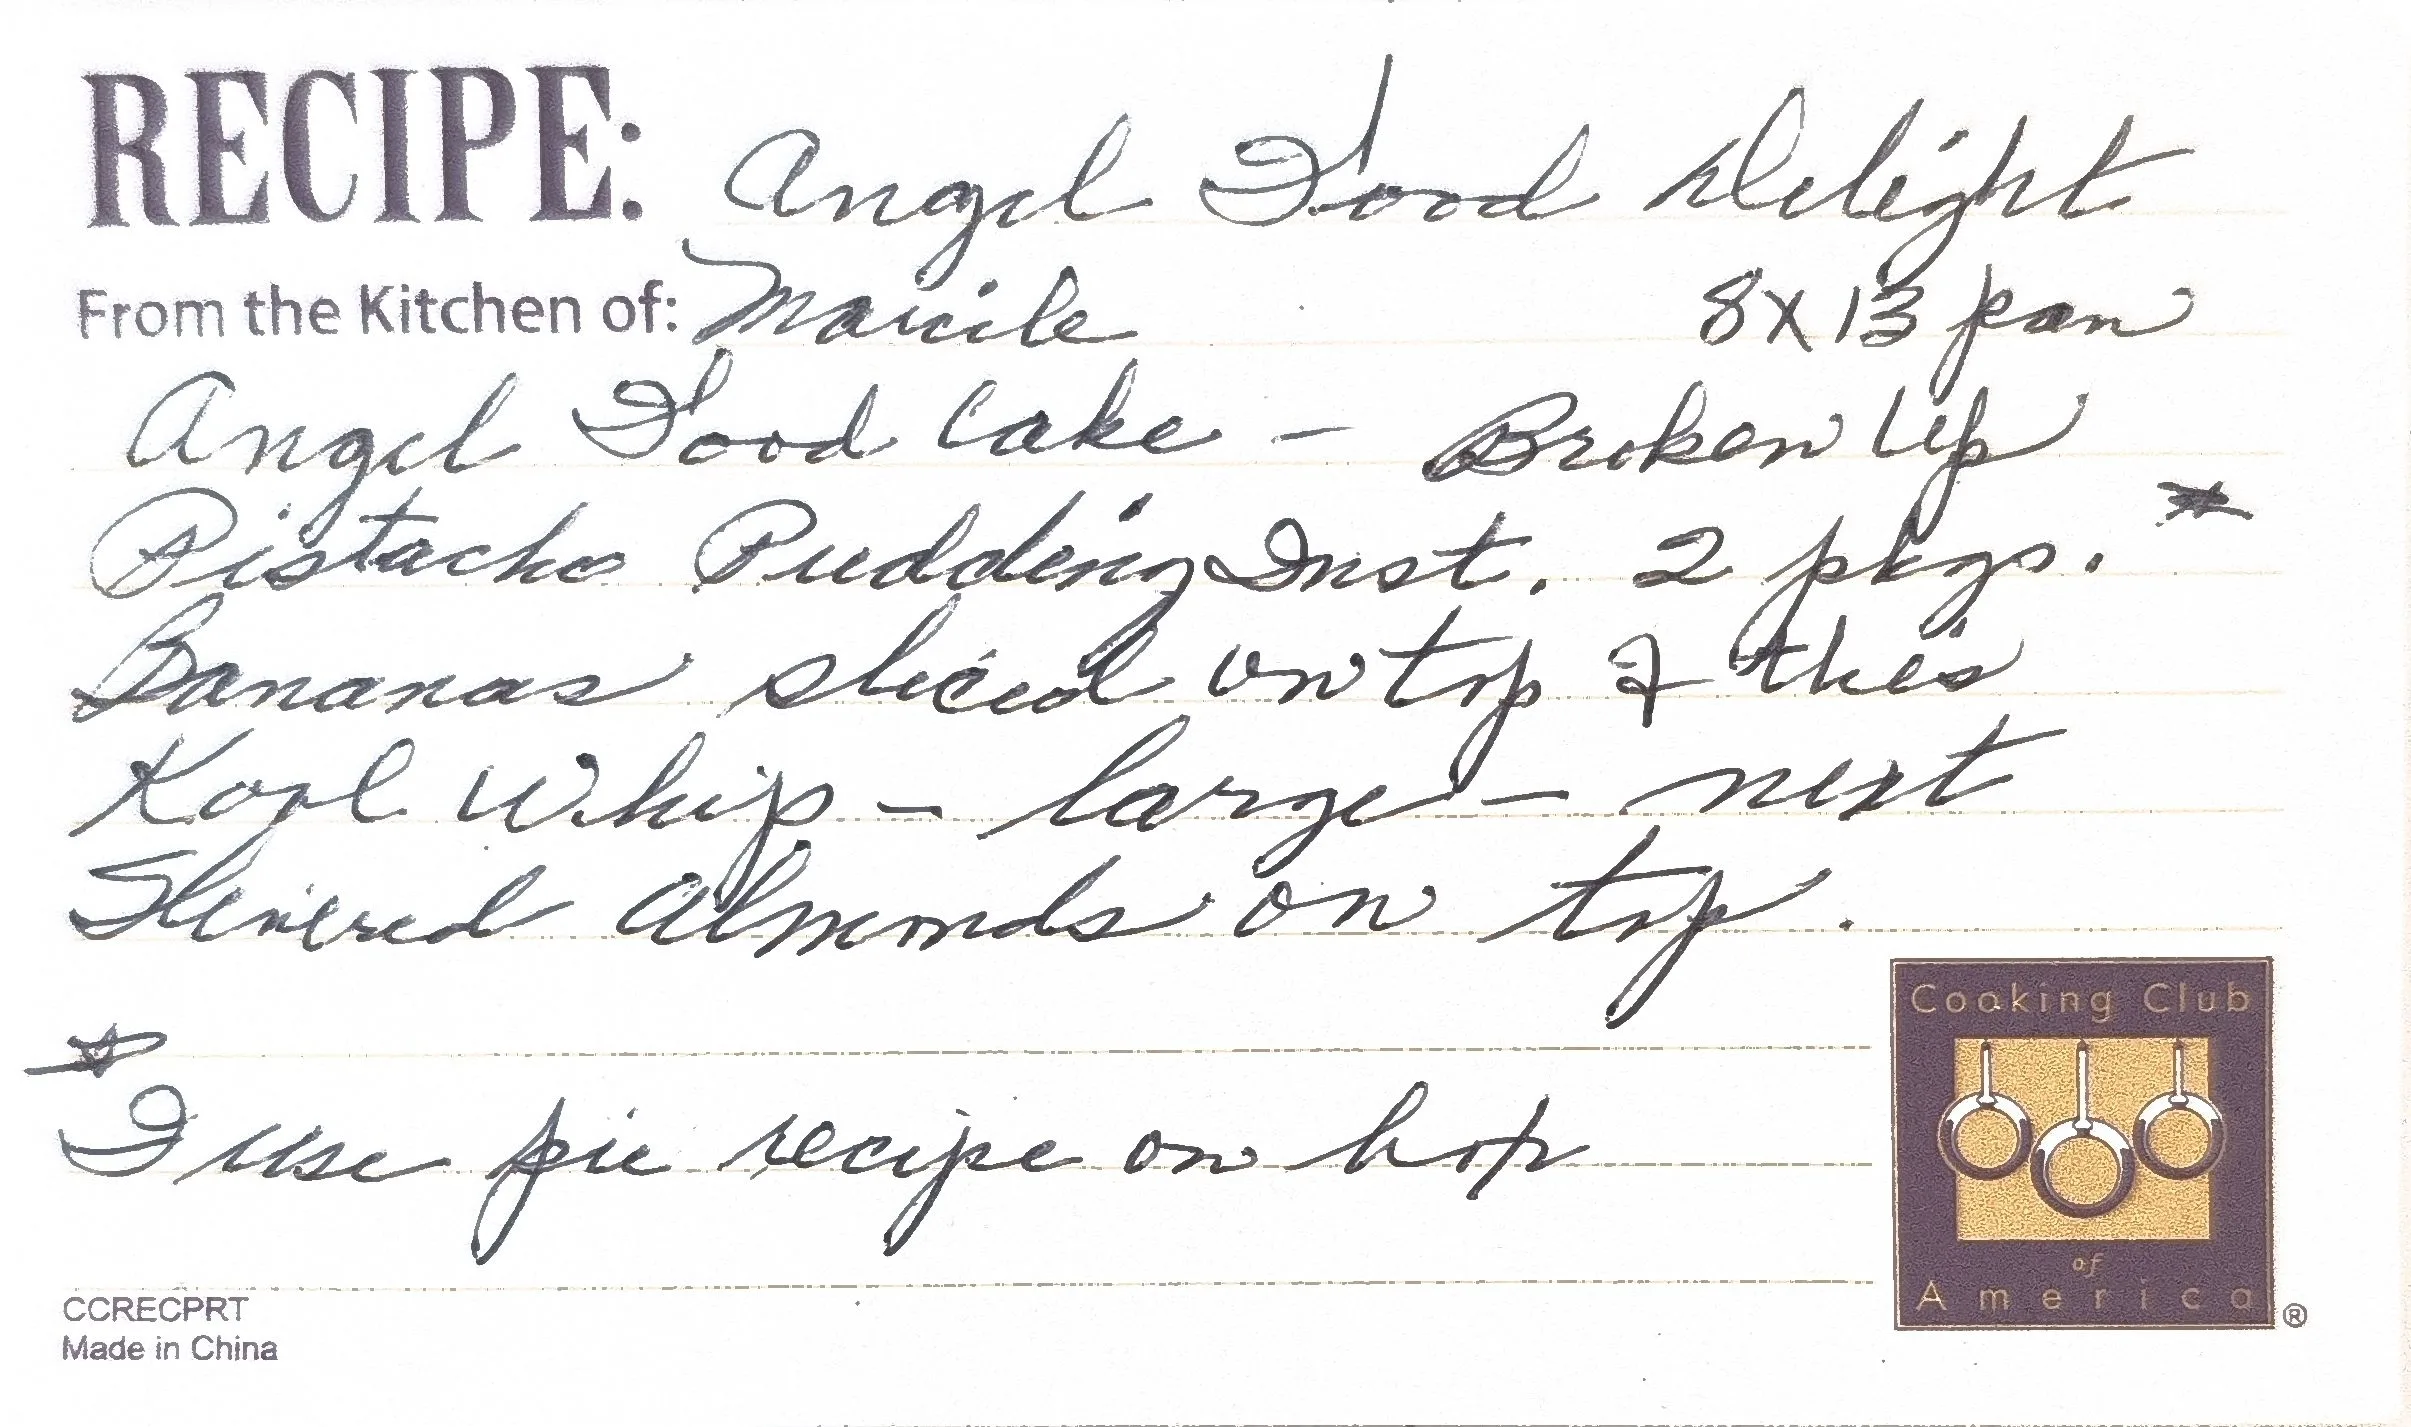 RECIPE: Angel Food Delight
From the Kitchen of: Maicile 8x13 pan
Angel Food Cake - Broken Up
Pistacho Pudding Inst. 2 pkgs. *
Bananas sliced on top of this
Kool Whip - large - next
Slivered Almonds on top.
*
I use pie recipe on
CCRECPRT
Made in China
Cooking Club
of
America
®